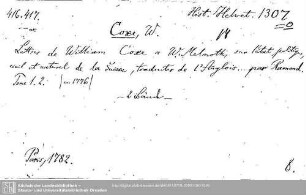 416.417. Hist. Helvet. 1307
Coxe, W.
Lettres de William Coxe a W. Melmoth, sur l'état politique,
civil et naturel de la Suisse, traduites de l'Anglois par Ramond.
Tome 1. 2. (m 1776)
— 2 Bände —
Paris, 1782.
8.